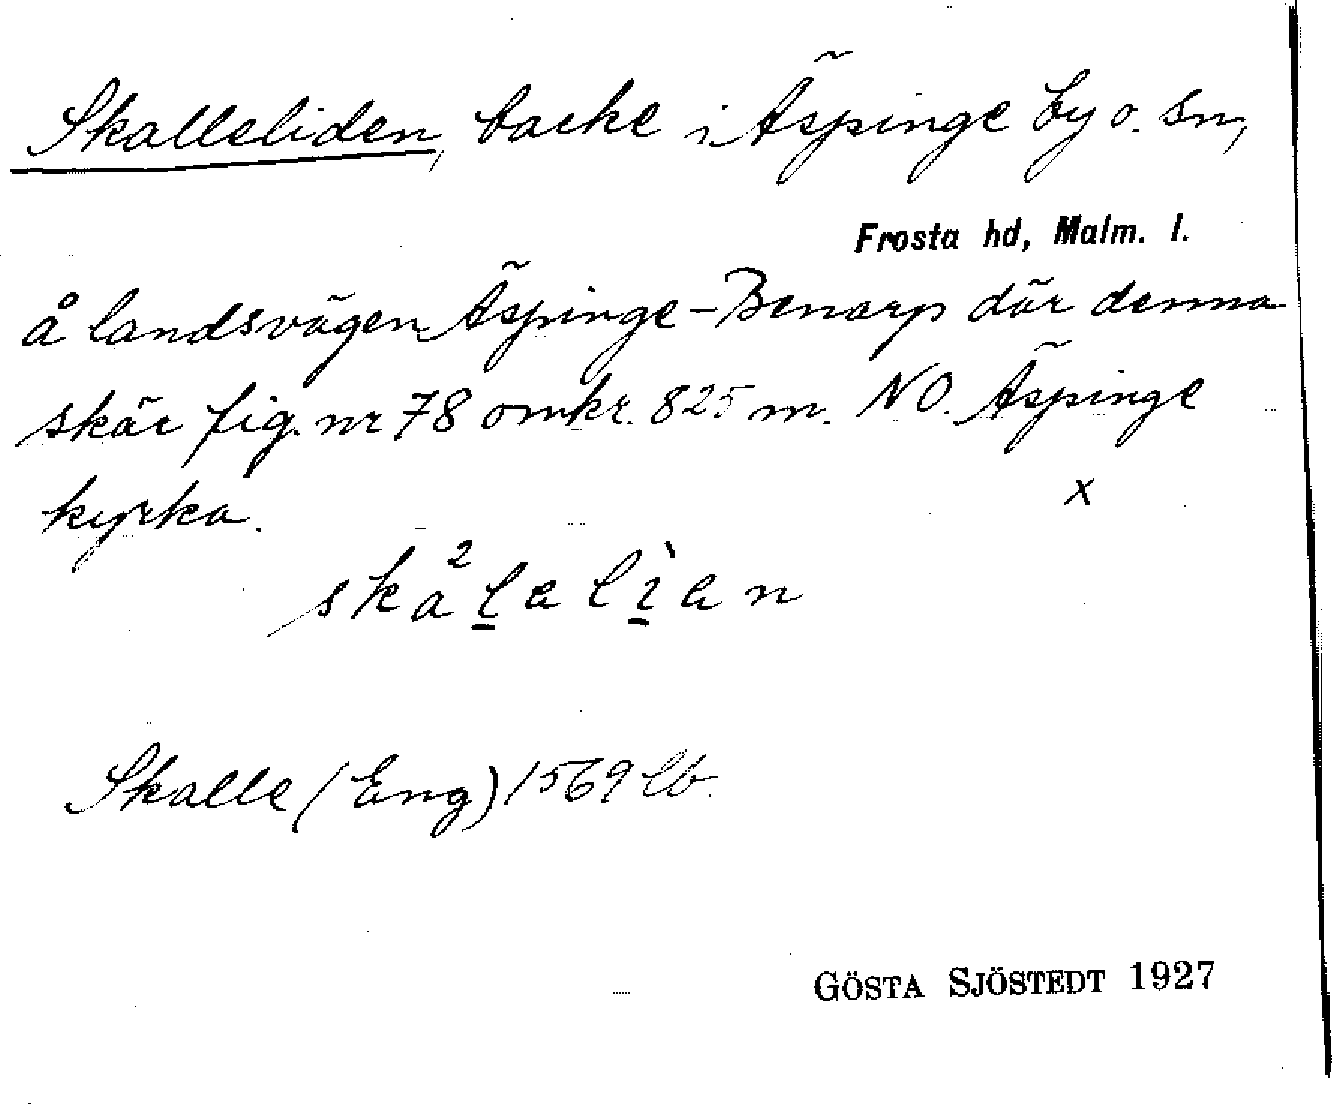 Skalleliden, backe i Äspinge by o. sn,
Frosta hd, Malm. l.
å landsvägen Äspinge-Benarp där denna
skär fig. nr 78 omkr. 825 m. NO. Äspinge
kyrka. x
ska²lalìan
Skalle (Eng) 1569 lb.
GÖSTA SJÖSTEDT 1927